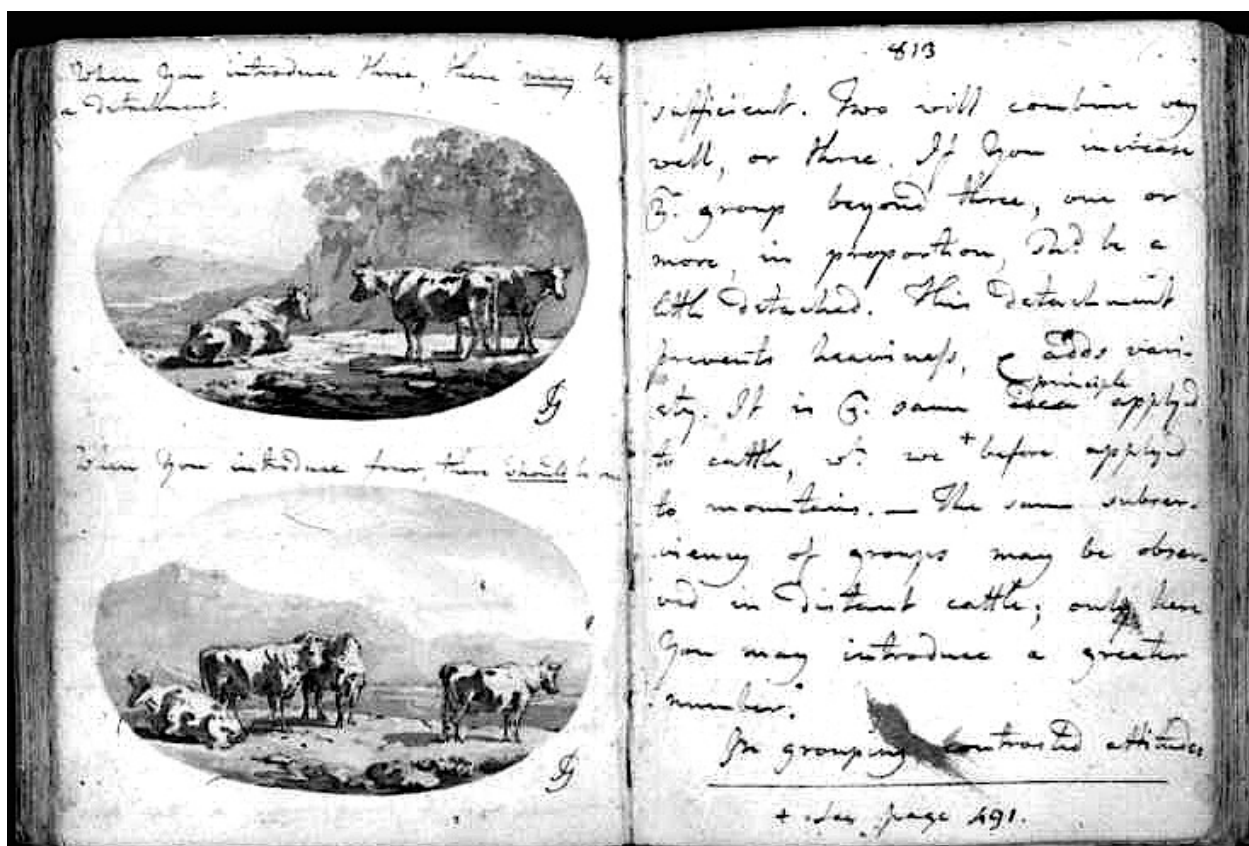 When you introduce three, there may be
a detachment.
When you introduce four, there should be one
813
sufficient. Two will combine very
well, or three. If you increase
ye. group beyond three, one or
more, in proportion, shd. be a
little detached. This detachment
prevents heaviness, & adds vari-
principle
ety. It is ye. same idea applyed
to cattle, wh. we + before applyed
to mountains. — The same subser-
viency of groups may be obser-
ved in distant cattle; only here
you may introduce a greater
number.
In grouping contrasted attitudes
+ See page 491.